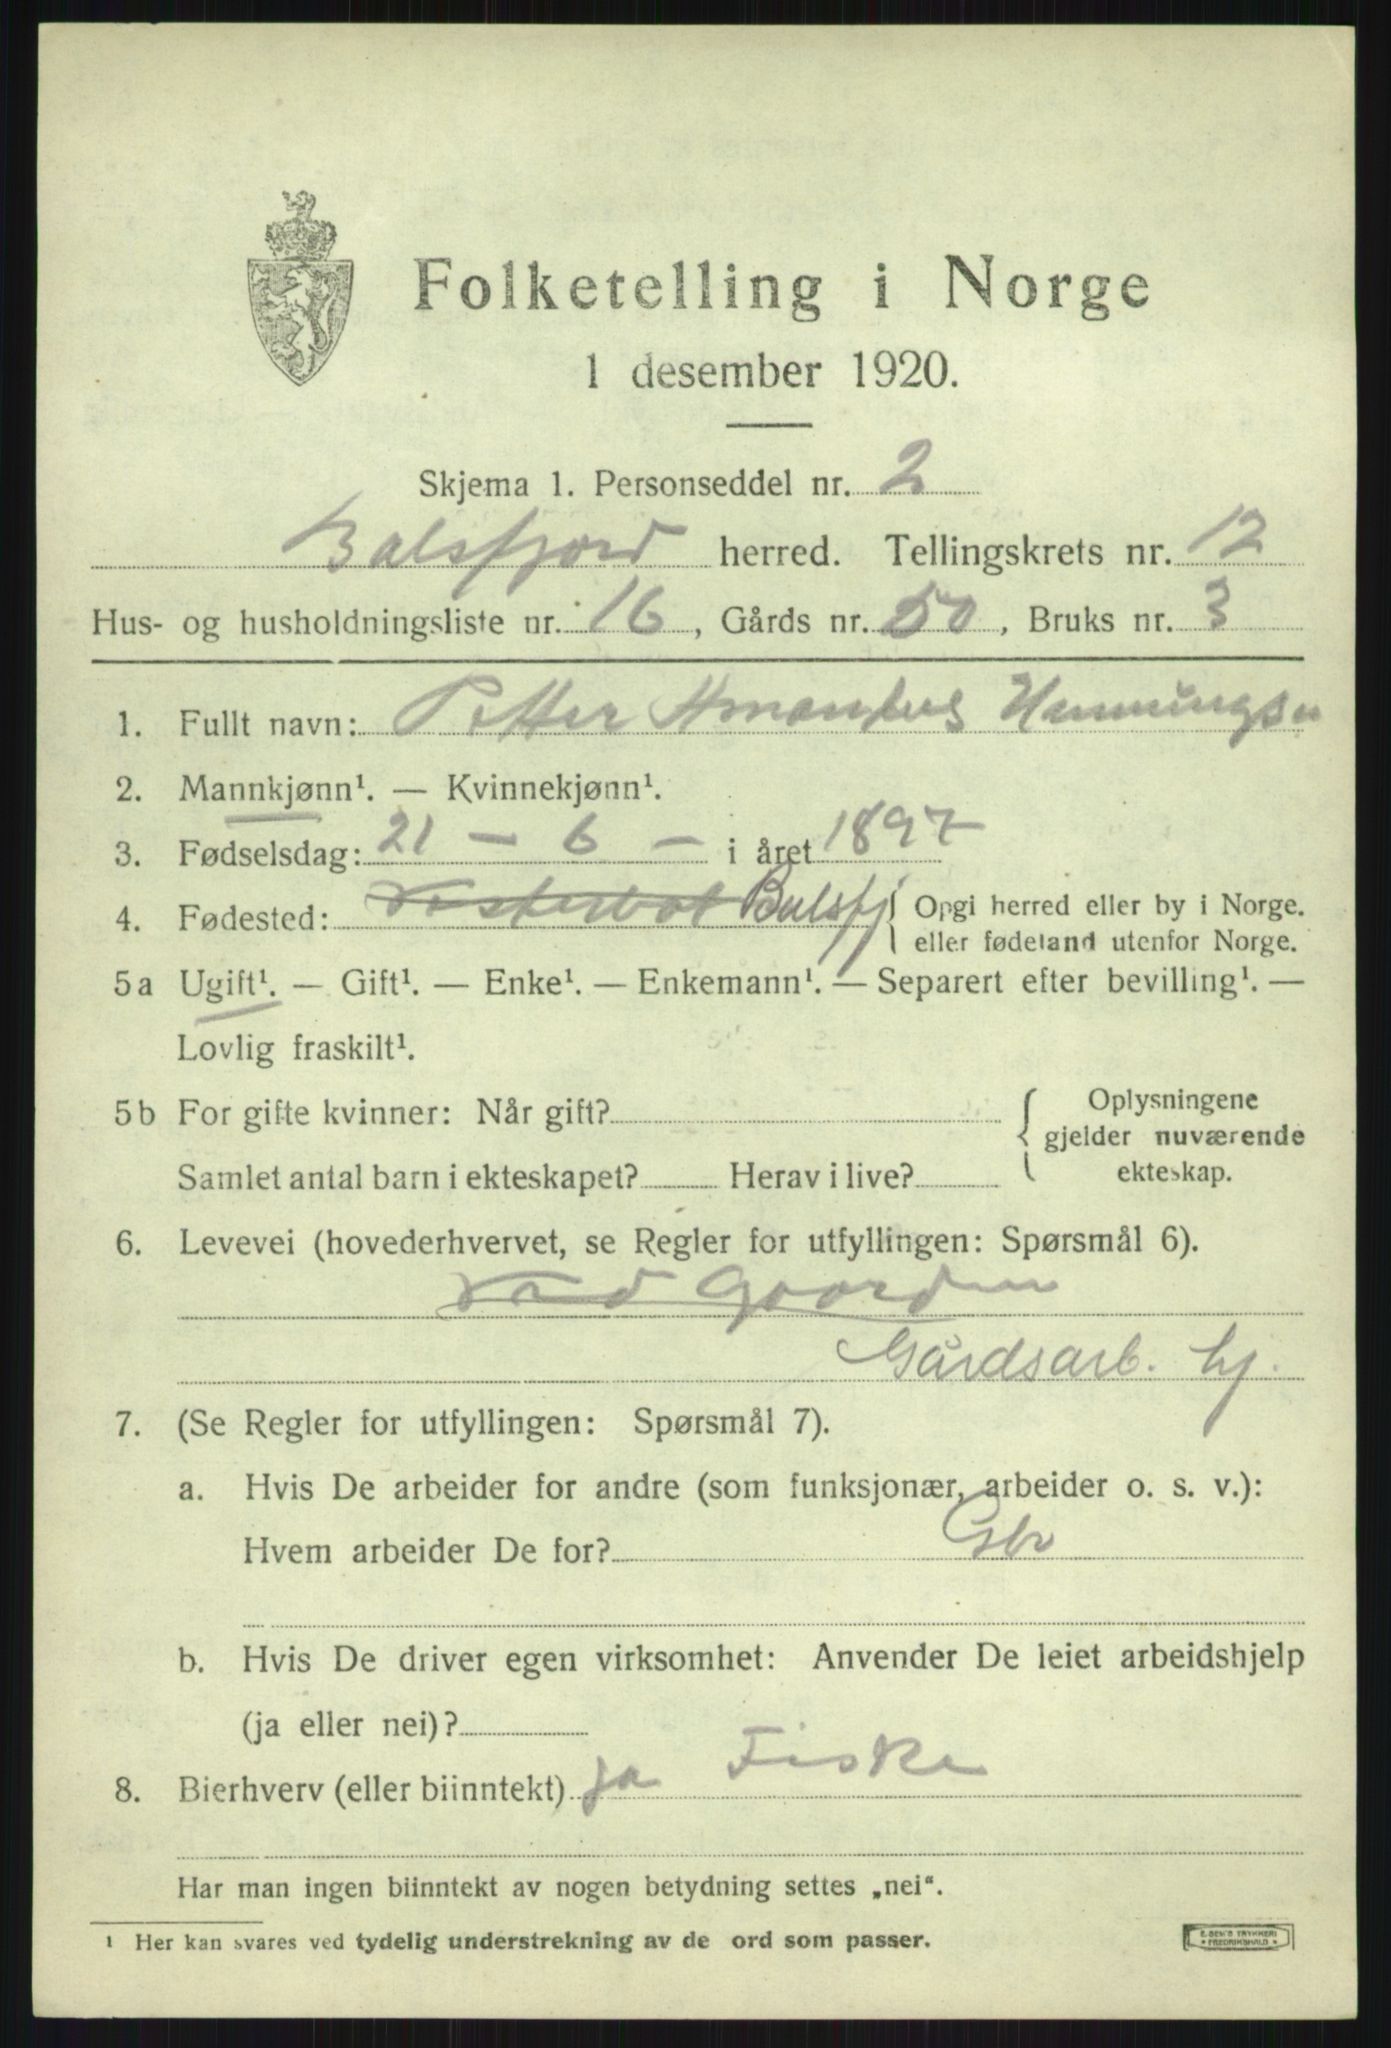 Folketelling i Norge
1 desember 1920.
Skjema 1. Personseddel nr. 2
Balsfjord herred. Tellingskrets nr. 12
Hus- og husholdningsliste nr. 16, Gårds nr. 50, Bruks nr. 3
1. Fullt navn: Petter Amandus Henningsen
2. Mannkjønn¹. — Kvinnekjønn¹.
3. Fødselsdag: 21 - 6 - i året 1897
4. Fødested: Vesterbot Balsfj { Opgi herred eller by i Norge.
eller fødeland utenfor Norge.
5a Ugift¹. — Gift¹. — Enke¹. — Enkemann¹. — Separert efter bevilling¹. —
Lovlig fraskilt¹.
5b For gifte kvinner: Når gift? { Oplysningene
gjelder nuværende
Samlet antal barn i ekteskapet? Herav i live? ekteskap.
6. Levevei (hovederhvervet, se Regler for utfyllingen: Spørsmål 6).
Ved Gaarden
Gårdsarb. hj.
7. (Se Regler for utfyllingen: Spørsmål 7).
a. Hvis De arbeider for andre (som funksjonær, arbeider o. s. v.):
Hvem arbeider De for? Gbr
b. Hvis De driver egen virksomhet: Anvender De leiet arbeidshjelp
(ja eller nei)?
8. Bierhverv (eller biinntekt) ja Fiske
Har man ingen biinntekt av nogen betydning settes „nei“.
¹ Her kan svares ved tydelig understrekning av de ord som passer.
E. SEM'S TRYKKERI
FREDRIKSHALD